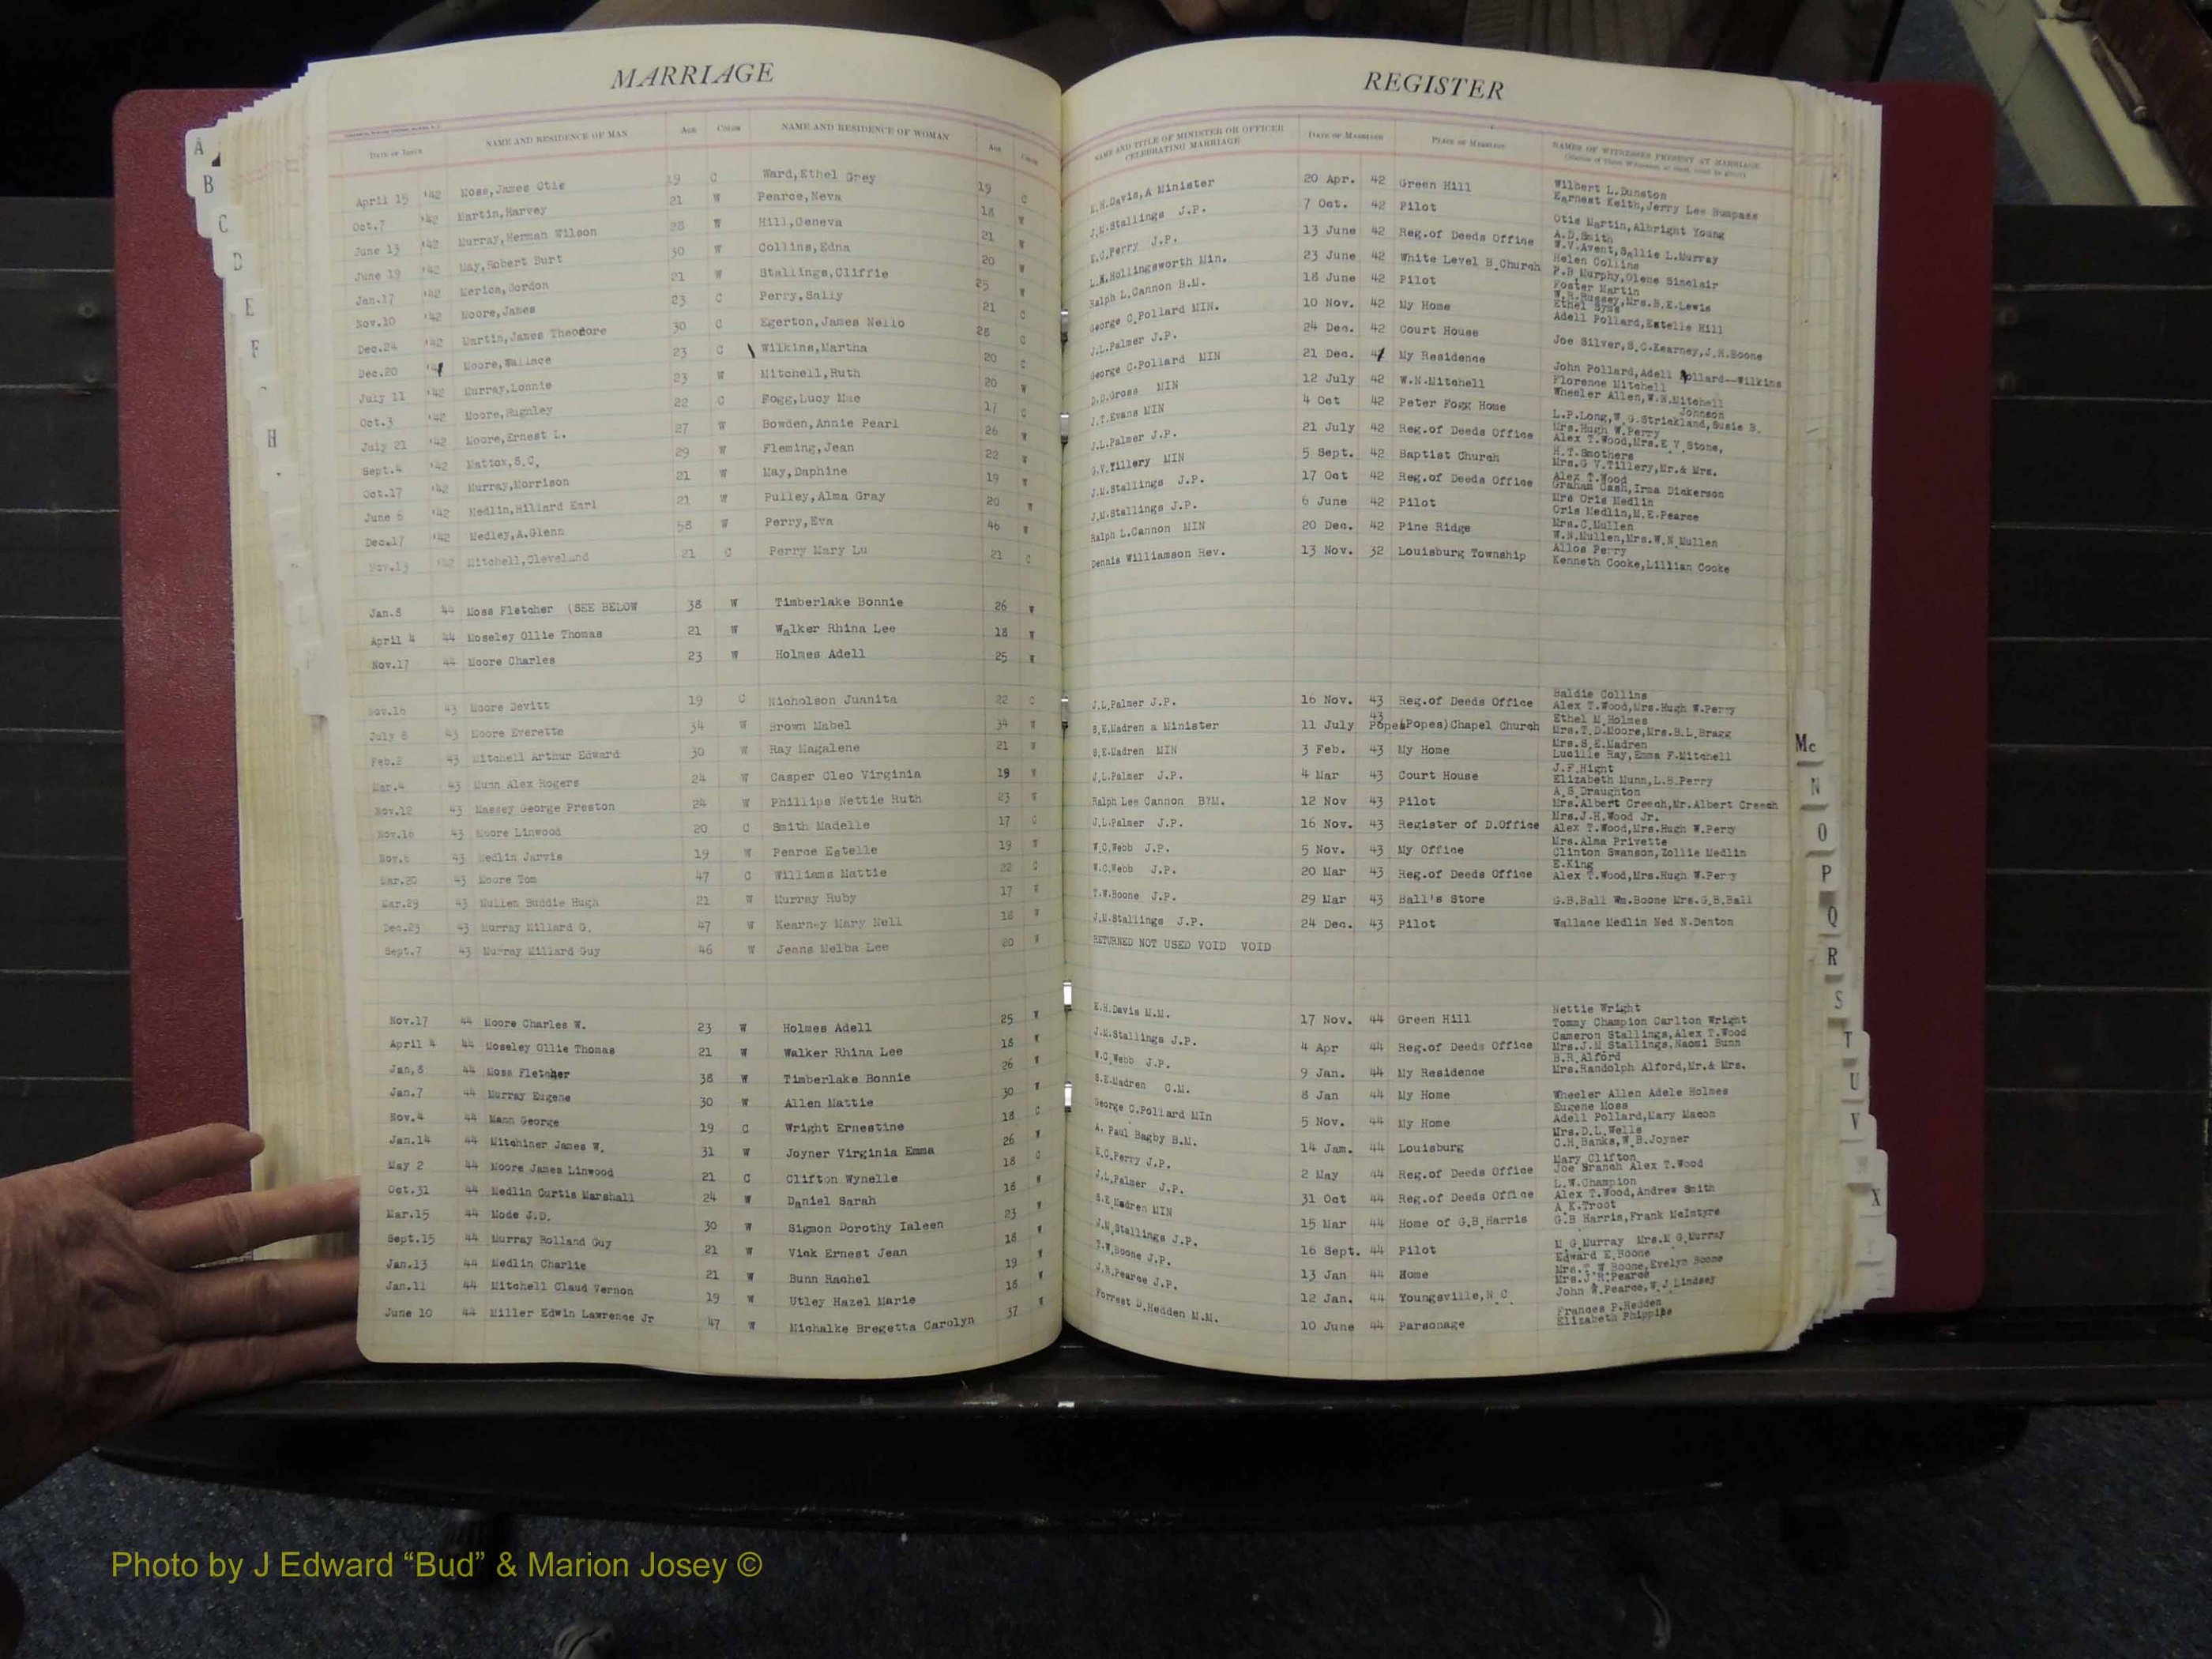 MARRIAGE REGISTER
DATE OF ISSUE NAME AND RESIDENCE OF MAN AGE COLOR NAME AND RESIDENCE OF WOMAN AGE COLOR NAME AND TITLE OF MINISTER OR OFFICER CELEBRATING MARRIAGE DATE OF MARRIAGE PLACE OF MARRIAGE NAMES OF WITNESSES PRESENT AT MARRIAGE
April 15 '42 Moss,James Otis 19 C Ward,Ethel Grey 19 C K.H.Davis,A Minister 20 Apr. 42 Green Hill Wilbert L.Dunston Earnest Keith,Jerry Lee Bumpass
Oct.7 '42 Martin,Harvey 21 W Pearce,Neva 18 W J.M.Stallings J.P. 7 Oct. 42 Pilot Otis Martin,Albright Young
June 13 '42 Murray,Herman Wilson 28 W Hill,Geneva 21 W K.C.Perry J.P. 13 June 42 Reg.of Deeds Office A.D.Smith W.V.Avent,Sallie L.Murray
June 19 '42 May,Robert Burt 30 W Collins,Edna 20 W L.W.Hollingsworth Min. 23 June 42 White Level B.Church Helen Collins P.B Murphy,Olene Sinclair
Jan.17 '42 Merica,Gordon 21 W Stallings,Cliffie 25 W Ralph L.Cannon B.M. 18 June 42 Pilot Foster Martin W.H.Hussey,Mrs.B.E.Lewis
Nov.10 '42 Moore,James 23 C Perry,Sally 21 C George C.Pollard MIN. 10 Nov. 42 My Home Ethel Syms Adell Pollard,Estelle Hill
Dec.24 '42 Martin,James Theodore 30 C Egerton,James Nello 28 C J.L.Palmer J.P. 24 Dec. 42 Court House Joe Silver,S.C.Kearney,J.R.Boone
Dec.20 '41 Moore,Wallace 23 C Wilkins,Martha 20 C George C.Pollard MIN 21 Dec. 41 My Residence John Pollard,Adell Pollard--Wilkins
July 11 '42 Murray,Lonnie 23 W Mitchell,Ruth 20 W D.D.Gross MIN 12 July 42 W.N.Mitchell Florence Mitchell Wheeler Allen,W.N.Mitchell
Oct.3 '42 Moore,Hugnley 22 C Fogg,Lucy Mae 17 C J.T.Evans MIN 4 Oct 42 Peter Fogg Home Johnson L.P.Long,W.G.Strickland,Susie B.
July 21 '42 Moore,Ernest L. 27 W Bowden,Annie Pearl 26 W J.L.Palmer J.P. 21 July 42 Reg.of Deeds Office Mrs.Hugh W.Perry Alex T.Wood,Mrs.E V Stone,
Sept.4 '42 Mattox,S.C. 29 W Fleming,Jean 22 W G.V.Tillery MIN 5 Sept. 42 Baptist Church H.T.Smothers Mrs.G V.Tillery,Mr.& Mrs.
Oct.17 '42 Murray,Morrison 21 W May,Daphine 19 W J.M.Stallings J.P. 17 Oct 42 Reg.of Deeds Office Alex T.Wood Graham Cash,Irma Dickerson
June 6 '42 Medlin,Hillard Earl 21 W Pulley,Alma Gray 20 W J.M.Stallings J.P. 6 June 42 Pilot Mrs Oris Medlin Oris Medlin,M.E.Pearce
Dec.17 '42 Medley,A.Glenn 58 W Perry,Eva 46 W Ralph L.Cannon MIN 20 Dec. 42 Pine Ridge Mrs.C.Mullen W.N.Mullen,Mrs.W.N.Mullen
Nov.13 '42 Mitchell,Cleveland 21 C Perry Mary Lu 21 C Dennis Williamson Rev. 13 Nov. 32 Louisburg Township Allos Perry Kenneth Cooke,Lillian Cooke
Jan.8 44 Moss Fletcher (SEE BELOW 38 W Timberlake Bonnie 26 W
April 4 44 Moseley Ollie Thomas 21 W Walker Rhina Lee 18 W
Nov.17 44 Moore Charles 23 W Holmes Adell 25 W
Nov.16 43 Moore Devitt 19 C Nicholson Juanita 22 C J.L.Palmer J.P. 16 Nov. 43 Reg.of Deeds Office Baldie Collins Alex T.Wood,Mrs.Hugh W.Perry
July 8 43 Moore Everette 34 W Brown Mabel 34 W S.E.Madren a Minister 11 July 43 Popes(Popes)Chapel Church Ethel M.Holmes Mrs.T.D.Moore,Mrs.B.L.Bragg
Feb.2 43 Mitchell Arthur Edward 30 W Ray Magalene 21 W S.E.Madren MIN 3 Feb. 43 My Home Mrs.S.E.Madren Lucille Ray,Emma F.Mitchell
Mar.4 43 Munn Alex Rogers 24 W Casper Cleo Virginia 19 W J.L.Palmer J.P. 4 Mar 43 Court House J.F.Hight Elizabeth Munn,L.B.Perry
Nov.12 43 Massey George Preston 24 W Phillips Nettie Ruth 23 W Ralph Lee Cannon B?M. 12 Nov 43 Pilot A.S.Draughton Mrs.Albert Creech,Mr.Albert Creech
Nov.16 43 Moore Linwood 20 C Smith Madelle 17 C J.L.Palmer J.P. 16 Nov. 43 Register of D.Office Mrs.J.H.Wood Jr. Alex T.Wood,Mrs.Hugh W.Perry
Nov.6 43 Medlin Jarvis 19 W Pearce Estelle 19 W W.C.Webb J.P. 5 Nov. 43 My Office Mrs.Alma Privette Clinton Swanson,Zollie Medlin
Mar.20 43 Moore Tom 47 C Williams Mattie 22 C W.C.Webb J.P. 20 Mar 43 Reg.of Deeds Office E.King Alex T.Wood,Mrs.Hugh W.Perry
Mar.29 43 Mullen Buddie Hugh 21 W Murray Ruby 17 W T.W.Boone J.P. 29 Mar 43 Ball's Store G.B.Ball Wm.Boone Mrs.G.B.Ball
Dec.23 43 Murray Millard G. 47 W Kearney Mary Nell 18 W J.M.Stallings J.P. 24 Dec. 43 Pilot Wallace Medlin Ned N.Denton
Sept.7 43 Murray Millard Guy 46 W Jeans Melba Lee 20 W RETURNED NOT USED VOID VOID
Nov.17 44 Moore Charles W. 23 W Holmes Adell 25 W K.H.Davis M.M. 17 Nov. 44 Green Hill Nettie Wright Tommy Champion Carlton Wright
April 4 44 Moseley Ollie Thomas 21 W Walker Rhina Lee 18 W J.M.Stallings J.P. 4 Apr 44 Reg.of Deeds Office Cameron Stallings,Alex T.Wood Mrs.J.M Stallings,Naomi Bunn
Jan,8 44 Moss Fletcher 38 W Timberlake Bonnie 26 W W.C.Webb J.P. 9 Jan. 44 My Residence B.R.Alford Mrs.Randolph Alford,Mr.& Mrs.
Jan.7 44 Murray Eugene 30 W Allen Mattie 30 W S.E.Madren C.M. 8 Jan 44 My Home Wheeler Allen Adele Holmes Eugene Moss
Nov.4 44 Mann George 19 C Wright Ernestine 18 C George C.Pollard MIn 5 Nov. 44 My Home Adell Pollard,Mary Macon
Jan.14 44 Mitchiner James W. 31 W Joyner Virginia Emma 26 W A. Paul Bagby B.M. 14 Jam. 44 Louisburg Mrs.D.L.Wells C.H.Banks,W.B.Joyner
May 2 44 Moore James Linwood 21 C Clifton Wynelle 18 C K.C.Perry J.P. 2 May 44 Reg.of Deeds Office Mary Clifton Joe Branch Alex T.Wood
Oct.31 44 Medlin Curtis Marshall 24 W Daniel Sarah 18 W J.L.Palmer J.P. 31 Oct 44 Reg.of Deeds Office L.W.Champion Alex T.Wood,Andrew Smith
Mar.15 44 Mode J.D. 30 W Sigmon Dorothy Ialeen 23 W S.E Madren MIN 15 Mar 44 Home of G.B.Harris A.K.Troot G.B Harris,Frank McIntyre
Sept.15 44 Murray Rolland Guy 21 W Vick Ernest Jean 18 W J.M.Stallings J.P. 16 Sept. 44 Pilot M G.Murray Mrs.M G.Murray
Jan.13 44 Medlin Charlie 21 W Bunn Rachel 19 W T.W.Boone J.P. 13 Jan 44 Home Edward E.Boone Mrs.T W Boone,Evelyn Boone
Jan.11 44 Mitchell Claud Vernon 19 W Utley Hazel Marie 18 W J.R.Pearce J.P. 12 Jan. 44 Youngsville,N.C. Mrs.J R.Pearce John W.Pearce,W.J.Lindsey
June 10 44 Miller Edwin Lawrence Jr 47 W Michalke Bregetta Carolyn 37 W Forrest D.Hedden M.M. 10 June 44 Parsonage Frances P.Hedden Elizabeth Phippips
A
B
C
D
E
F
H
Mc
N
O
P
Q
R
S
T
U
V
X
Photo by J Edward “Bud” & Marion Josey ©